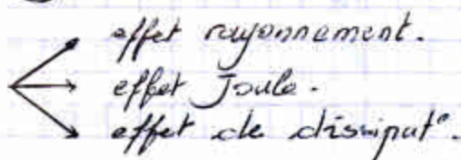 effet rayonnement.
effet Joule.
effet de dissipat°.